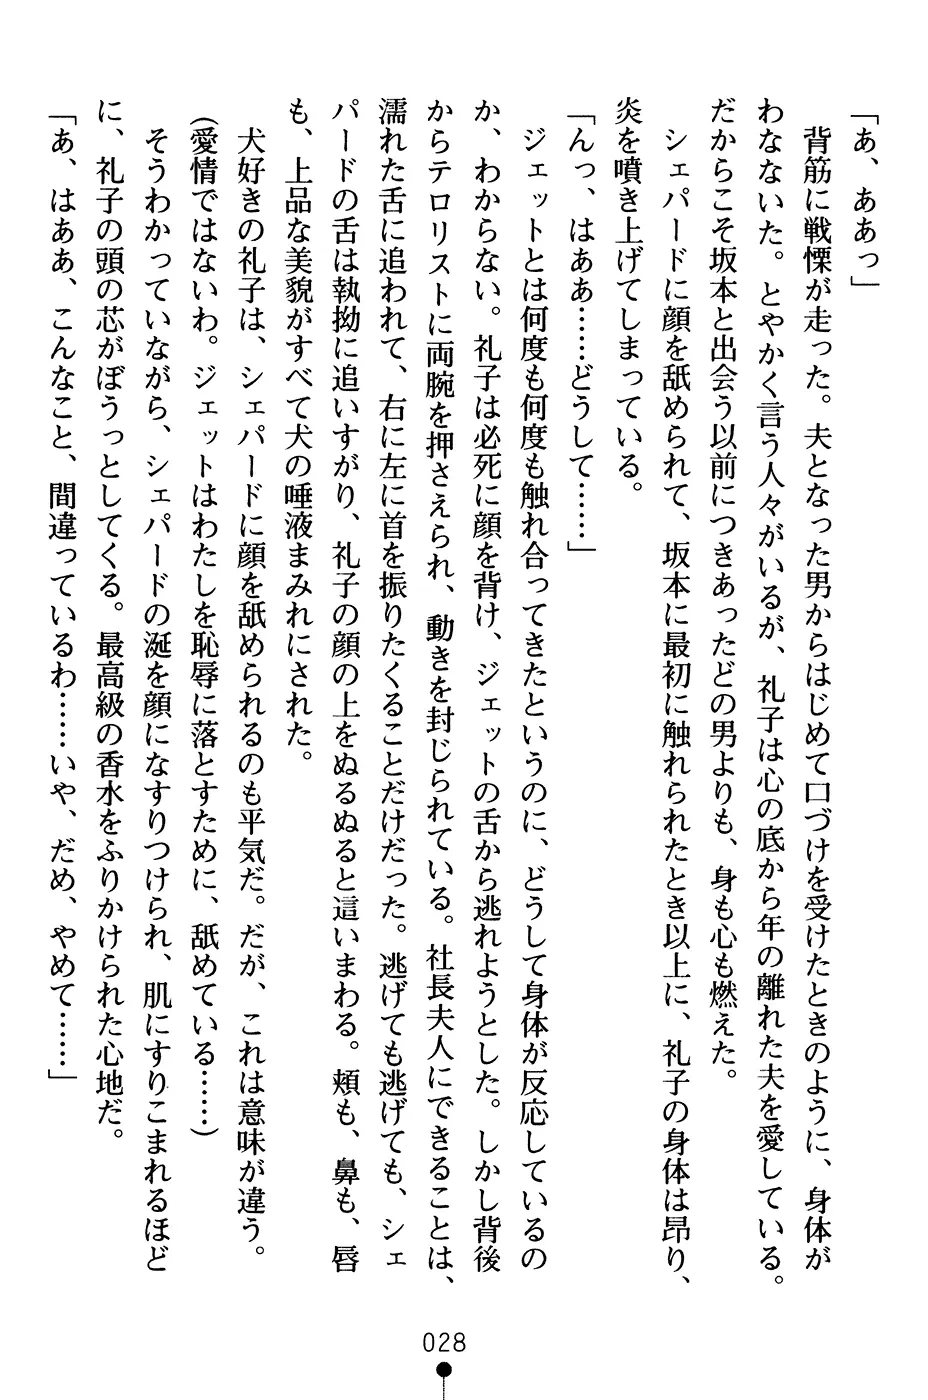 「あ、ああっ」
　背筋に戦慄が走った。夫となった男からはじめて口づけを受けたときのように、身体が
わなないた。とやかく言う人々がいるが、礼子は心の底から年の離れた夫を愛している。
だからこそ坂本と出会う以前につきあったどの男よりも、身も心も燃えた。
　シェパードに顔を舐められて、坂本に最初に触れられたとき以上に、礼子の身体は昂り、
炎を噴き上げてしまっている。
「んっ、はああ……どうして……」
　ジェットとは何度も何度も触れ合ってきたというのに、どうして身体が反応しているの
か、わからない。礼子は必死に顔を背け、ジェットの舌から逃れようとした。しかし背後
からテロリストに両腕を押さえられ、動きを封じられている。社長夫人にできることは、
濡れた舌に追われて、右に左に首を振りたくることだけだった。逃げても逃げても、シェ
パードの舌は執拗に追いすがり、礼子の顔の上をぬるぬると這いまわる。頬も、鼻も、唇
も、上品な美貌がすべて犬の唾液まみれにされた。
　犬好きの礼子は、シェパードに顔を舐められるのも平気だ。だが、これは意味が違う。
（愛情ではないわ。ジェットはわたしを恥辱に落とすために、舐めている……）
　そうわかっていながら、シェパードの涎を顔になすりつけられ、肌にすりこまれるほど
に、礼子の頭の芯がぼうっとしてくる。最高級の香水をふりかけられた心地だ。
「あ、はああ、こんなこと、間違っているわ……いや、だめ、やめて……」
028